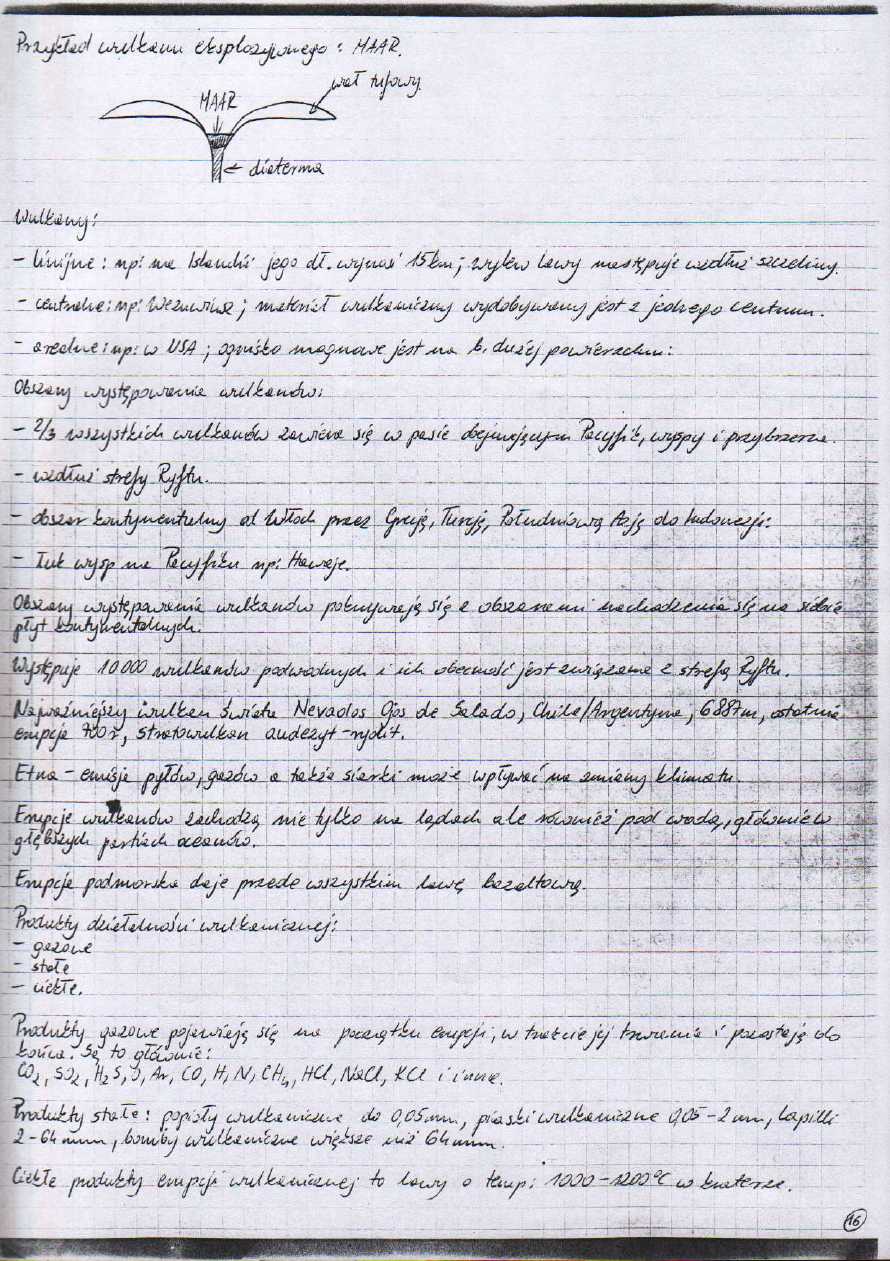 Przykład wulkanu eksplozywnego: MAAR.
wał tufowy
MAAR
diaterma
Wulkany:
- linijne: np: na Islandii jego dł. wynosi 15km; wylew lawy następuje wzdłuż szczeliny.
- centralne: np: Wezuwiusz; materiał wulkaniczny wydobywany jest z jednego centrum.
- arealne: np: w USA; ognisko magmowe jest na b. dużej powierzchni.
Obszary występowania wulkanów:
- 2/3 wszystkich wulkanów zawiera się w pasie obejmującym Pacyfik, wyspy i przybrzeża.
- wzdłuż strefy Ryftu.
- obszar kontynentalny od Włoch przez Grecję, Turcję, Południową Azję do Indonezji.
- łuk wysp na Pacyfiku np: Hawaje.
Obszary występowania wulkanów pokrywają się z obszarami nachodzenia się na siebie
płyt kontynentalnych.
Występuje 10 000 wulkanów podwodnych i ich obecność jest związana z strefą Ryftu.
Najważniejszy wulkan Świata Nevados Ojos de Salado, Chile/Argentyna, 6887m, ostatnia
erupcja 700r, stratowulkan andezyt-ryolit.
Etna - emisja pyłów, gazów a także siarki może wpływać na zmiany klimatu.
Erupcje wulkanów zachodzą nie tylko na lądach ale również pod wodą, głównie w
głębszych partiach oceanów.
Erupcja podmorska daje przede wszystkim lawę bazaltową.
Produkty działalności wulkanicznej:
- gazowe
- stałe
- ciekłe.
Produkty gazowe pojawiają się na początku erupcji, w trakcie jej trwania i pozostają do
końca. Są to głównie:
CO2, SO2, H2S, O, Ar, CO, H, N, CH4, HCl, NaCl, KCl i inne.
Produkty stałe: popioły wulkaniczne do 0,05mm, piaski wulkaniczne 0,05-2mm, lapilli
2-64mm, bomby wulkaniczne większe niż 64mm.
Ciekłe produkty erupcji wulkanicznej to lawy o temp: 1000-1200°C w kraterze.
16